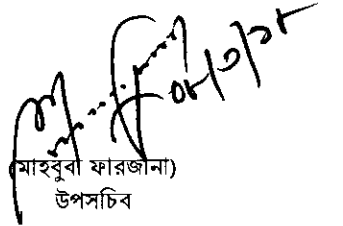 (মাহবুবা ফারজানা)
উপসচিব